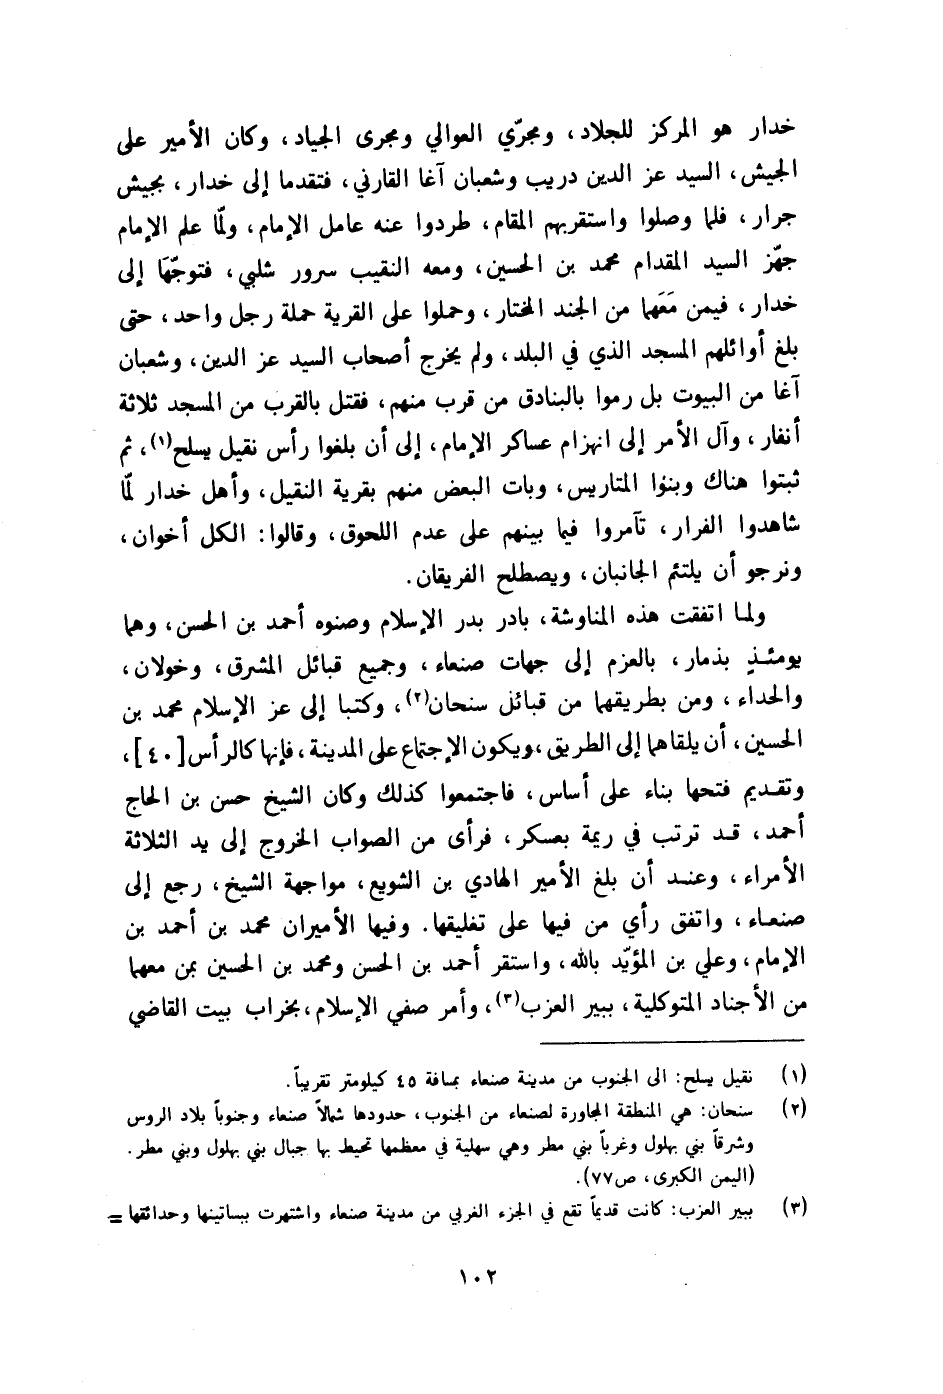 خدار هو المركز للجلاد، ومجرّي العوالي ومجرى الجياد، وكان الأمير على
الجيش، السيد عز الدين دريب وشعبان آغا القارني، فتقدما إلى خدار، بجيش
جرار، فلما وصلوا واستقربهم المقام، طردوا عنه عامل الإمام، ولمّا علم الإمام
جهّز السيد المقدام محمد بن الحسين، ومعه النقيب سرور شلبي، فتوجّهَا إلى
خدار، فيمن مَعَهما من الجند المختار، وحملوا على القرية حملة رجل واحد، حتى
بلغ أوائلهم المسجد الذي في البلد، ولم يخرج أصحاب السيد عز الدين، وشعبان
آغا من البيوت بل رموا بالبنادق من قرب منهم، فقتل بالقرب من المسجد ثلاثة
أنفار، وآل الأمر إلى انهزام عساكر الإمام، إلى أن بلغوا رأس نقيل يسلح(١)، ثم
ثبتوا هناك وبنوا المتاريس، وبات البعض منهم بقرية النقيل، وأهل خدار لمّا
شاهدوا الفرار، تآمروا فيما بينهم على عدم اللحوق، وقالوا: الكل أخوان،
ونرجو أن يلتئم الجانبان، ويصطلح الفريقان.
ولما اتفقت هذه المناوشة، بادر بدر الإسلام وصنوه أحمد بن الحسن، وهما
يومئذٍ بذمار، بالعزم إلى جهات صنعاء، وجميع قبائل المشرق، وخولان،
والحداء، ومن بطريقهما من قبائل سنحان(٢)، وكتبا إلى عز الإسلام محمد بن
الحسين، أن يلقاهما إلى الطريق، ويكون الإجتماع على المدينة، فإنها كالرأس[٤٠]،
وتقديم فتحها بناء على أساس، فاجتمعوا كذلك وكان الشيخ حسن بن الحاج
أحمد، قد ترتب في ريمة بعسكر، فرأى من الصواب الخروج إلى يد الثلاثة
الأمراء، وعند أن بلغ الأمير الهادي بن الشويع، مواجهة الشيخ، رجع إلى
صنعاء، واتفق رأي من فيها على تغليقها. وفيها الأميران محمد بن أحمد بن
الإمام، وعلي بن المؤيّد بالله، واستقر أحمد بن الحسن ومحمد بن الحسين بمن معهما
من الأجناد المتوكلية، ببير العزب(٣)، وأمر صفي الإسلام، بخراب بيت القاضي
(١) نقيل يسلح: الى الجنوب من مدينة صنعاء بمسافة ٤٥ كيلومتر تقريباً.
(٢) سنحان: هي المنطقة المجاورة لصنعاء من الجنوب، حدودها شمالاً صنعاء وجنوباً بلاد الروس
وشرقاً بني بهلول وغرباً بني مطر وهي سهلية في معظمها تحيط بها جبال بني بهلول وبني مطر.
(اليمن الكبرى، ص٧٧).
(٣) ببير العزب: كانت قديماً تقع في الجزء الغربي من مدينة صنعاء واشتهرت ببساتينها وحدائقها =
١٠٢